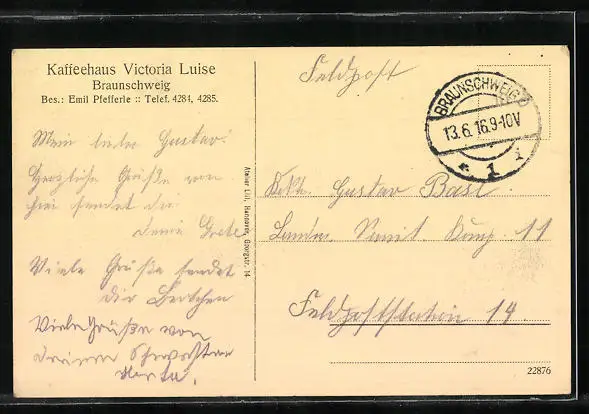 Kaffeehaus Victoria Luise
Braunschweig
Bes.: Emil Pfefferle :: Telef. 4284, 4285.
Mein lieber Gustav!
Herzliche Grüße von
hier sendet dir
deine Grete
Viele Grüße sendet
dir Bertchen
Viele Grüße von
deiner
Herta.
Atelier Lill, Hannover, Georgstr. 14
Feldpost
BRAUNSCHWEIG
13.6.16.9-10V
* 1 i
Gustav Basl
Landw. Komp. 11
Feldpoststation 14.
22876